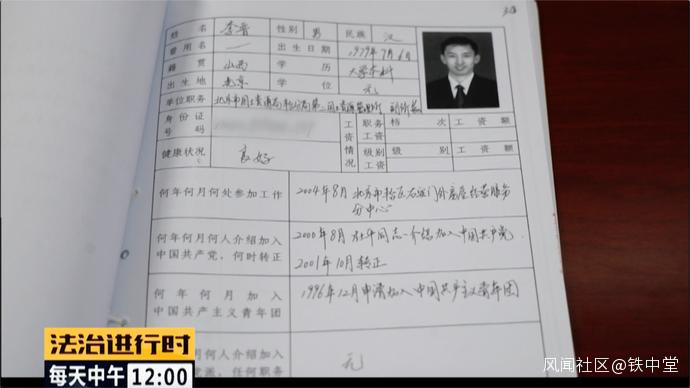 姓名 李晋 性别 男 民族 汉
曾用名 一 出生日期 1979年7月6日
籍贯 山西 学历 大学本科
出生地 北京 学位 无
单位职务 副所长
身份证号码 工资情况 职务工资 档次 工资额
级别工资 级别 工资额
健康状况 良好
何年何月何处参加工作 2004年8月 北京市
分中心
何年何月何人介绍加入中国共产党,何时转正 2000年8月 同志介绍加入中国共产党
2001年10月转正
何年何月加入中国共产主义青年团 1996年12月申请加入中国共产主义青年团
何月何人介绍加入
党派,任何职务 无
法治进行时
每天中午 12:00
风闻社区@铁中堂